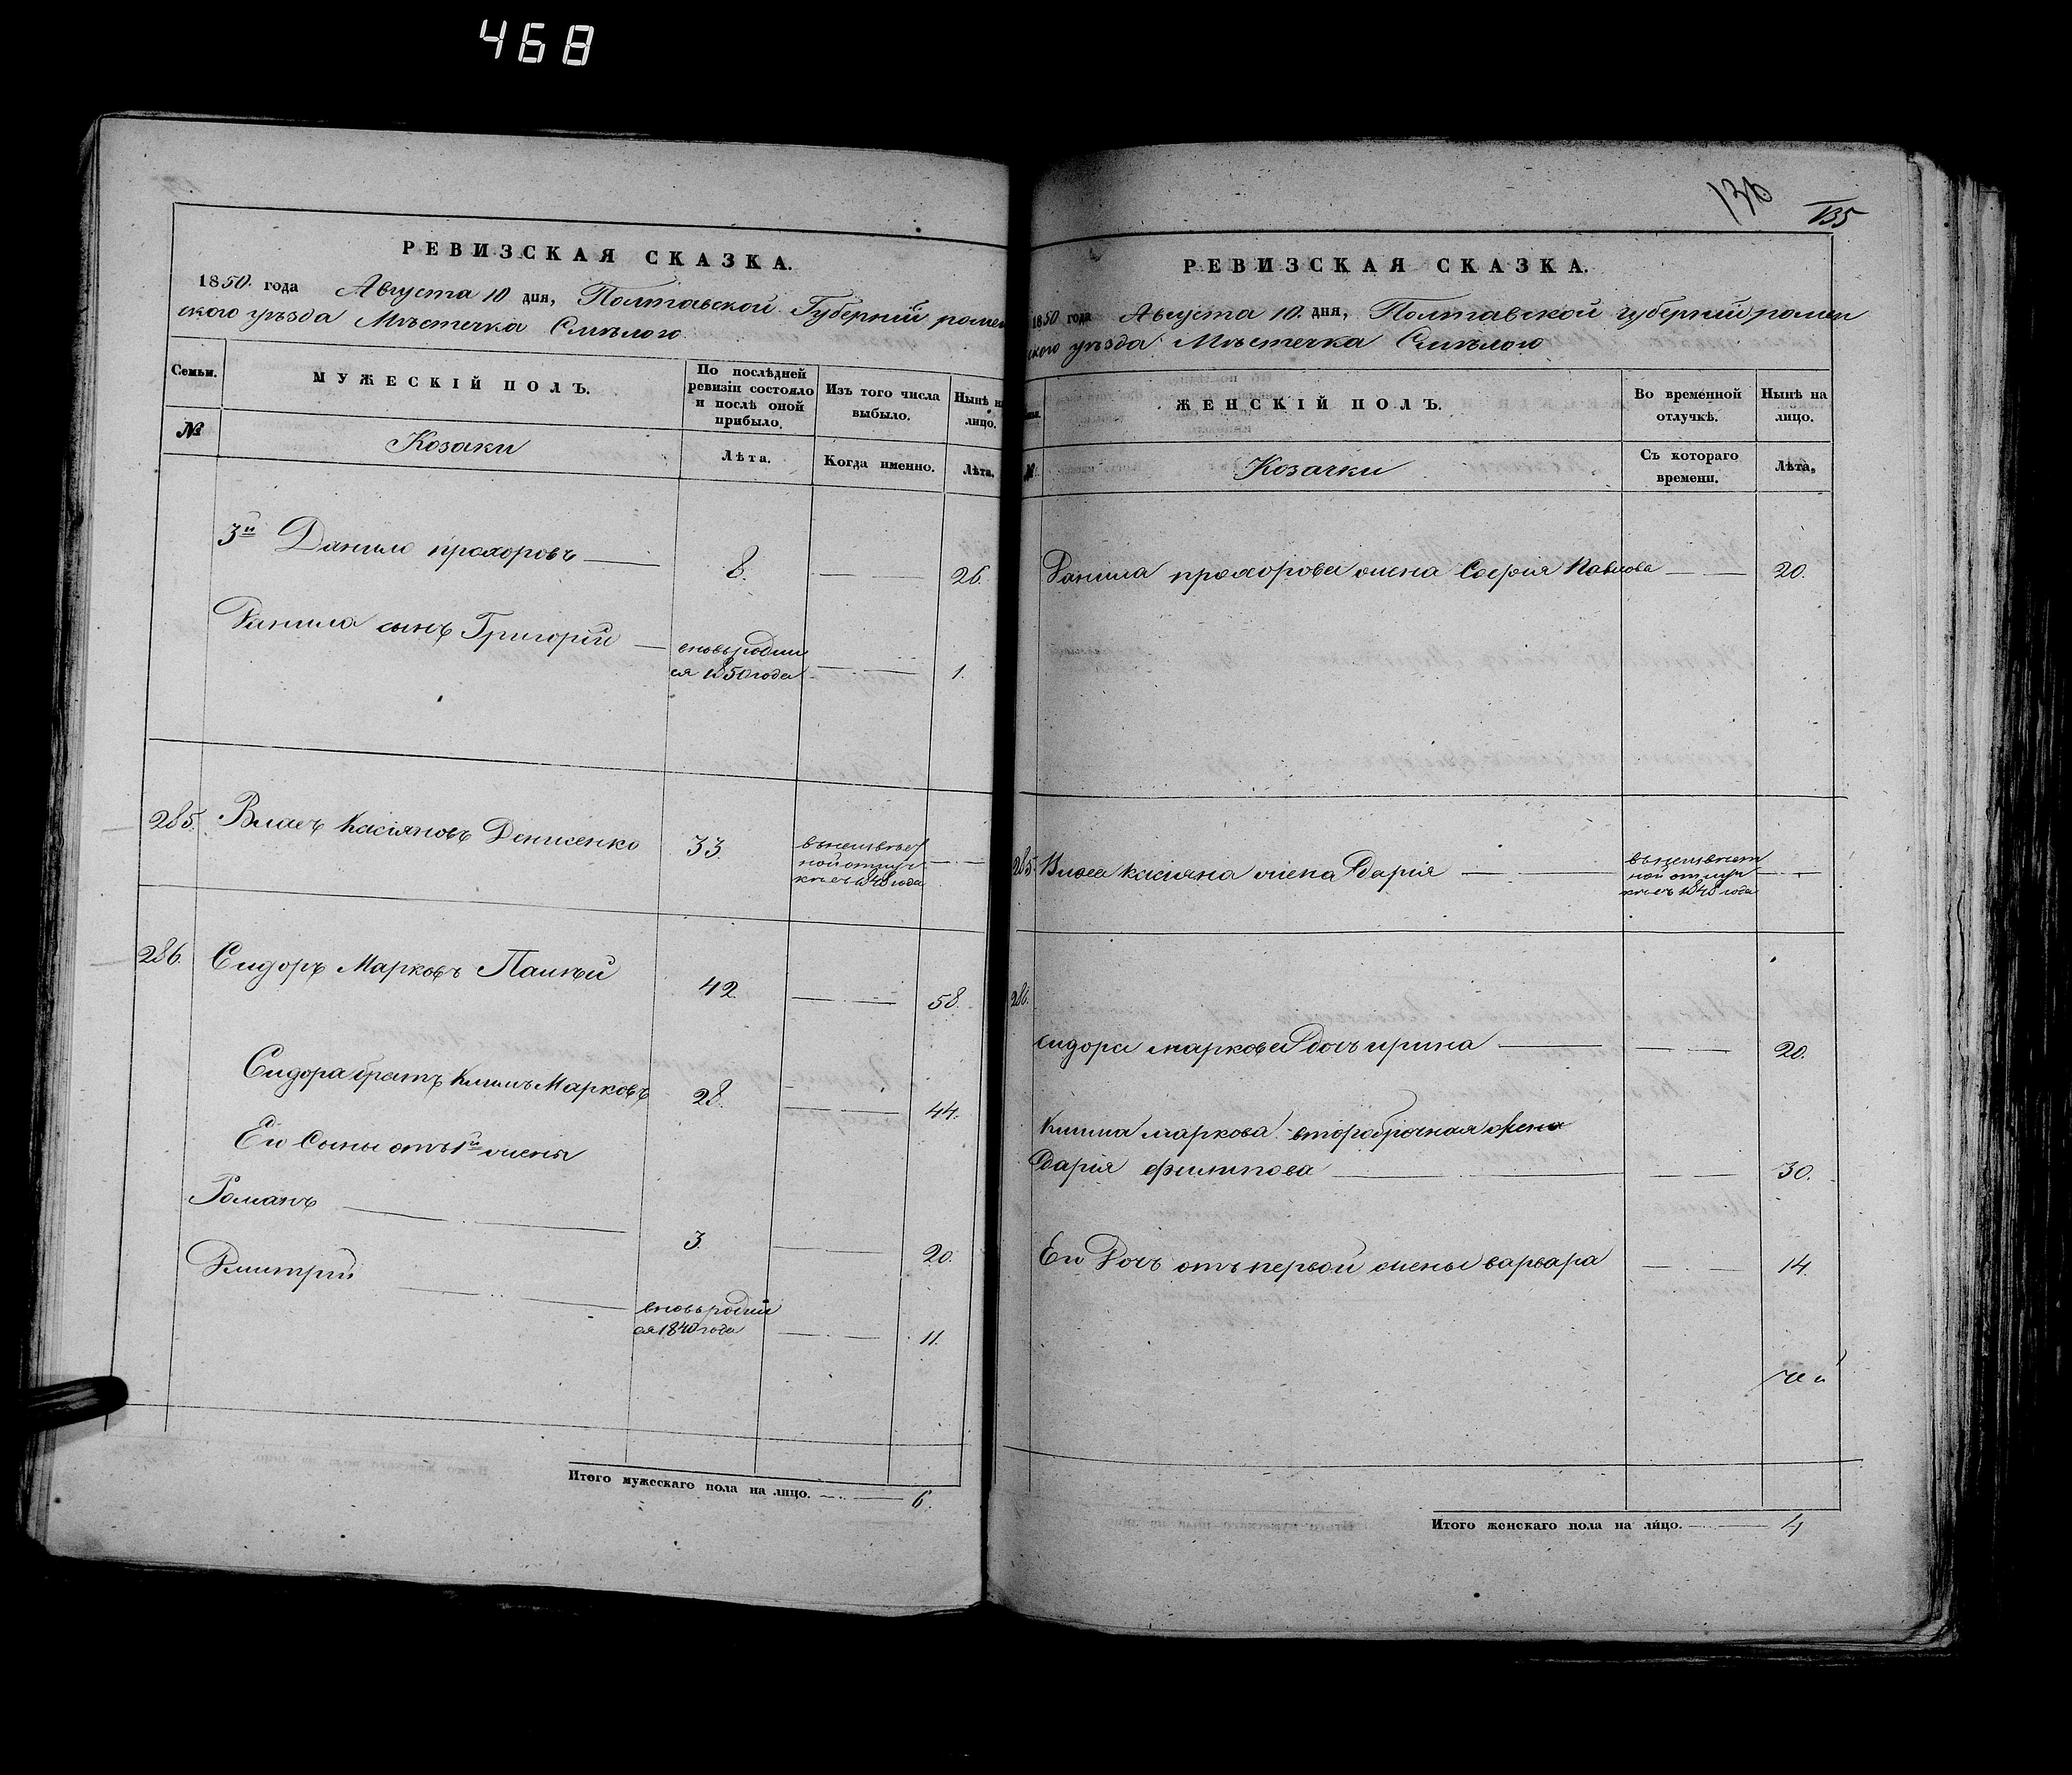 468
РЕВИЗСКАЯ СКАЗКА.
1850. года Августа 10 дня, Полтавской Губерніи ромен
ского уѣзда Мѣстечка Смѣлого
Семьи. МУЖЕСКІЙ ПОЛЪ. По послѣдней ревизіи состояло и послѣ оной прибыло. Изъ того числа выбыло. Нынѣ на лицо.
№ Козаки Лѣта. Когда именно. Лѣта.
3й Данило прохоровъ 8. 26.
Данила сынъ Григорій вновь родил
ся 1850 года 1.
285. Власъ Касіяновъ Денисенко 33.
ной отлуч
кѣ съ 1848 года
286. Сидоръ Марковъ 42. 58.
Сидора братъ Климъ Марковъ 28. 44.
Ею Сыны отъ 1й жены
Романъ 3. 20.
Дмитрій вновь родил
ся 1840 года 11.
Итого мужескаго пола на лицо. 6.
136 135
РЕВИЗСКАЯ СКАЗКА.
1850 года Августа 10. дня, Полтавской губерніи ромен
ского уѣзда Мѣстечка Смѣлого
ЖЕНСКІЙ ПОЛЪ. Во временной отлучкѣ. Нынѣ на лицо.
№ Козачки Съ котораго времени. Лѣта.
Данила прохорова жена Софія Павлова 20.
285. Власа касіяна жена Дарія
ной отлуч
кѣ съ 1848 года
286.
сидора маркова дочь ирина 20.
Клима маркова второбрачная жена
Дарія филипова 30.
Ею Дочь отъ первой жены варвара 14.
Итого женскаго пола на лицо. 4